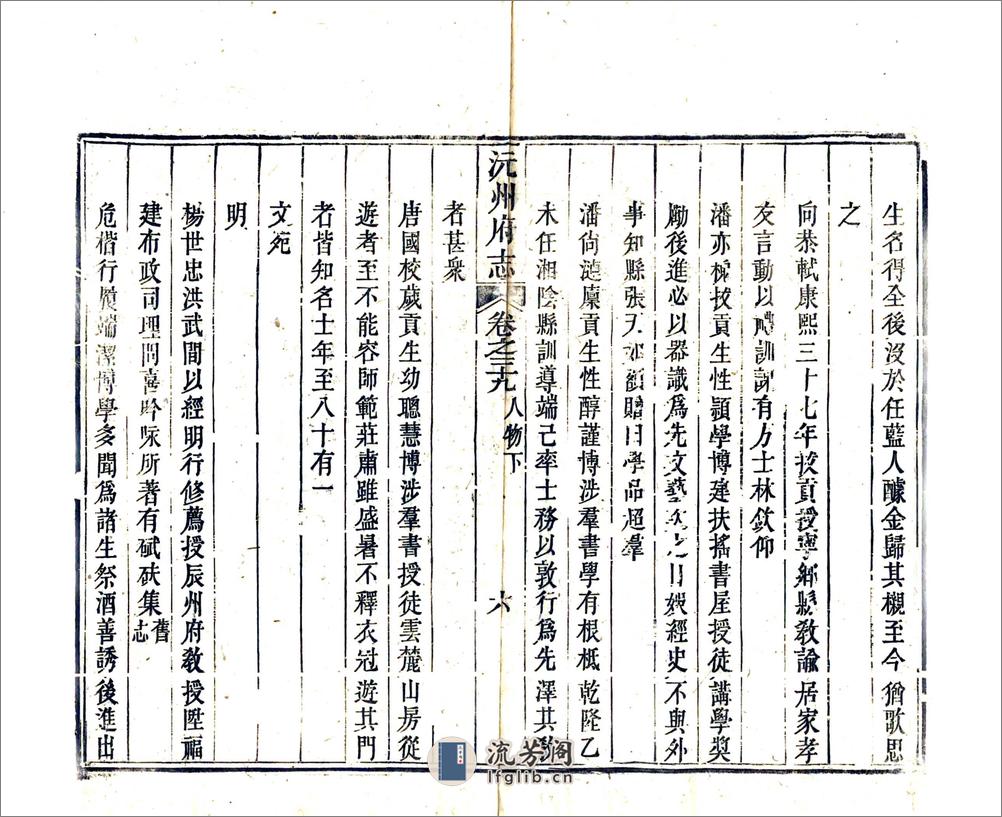 生名得全後沒於任藍人醵金歸其櫬至今猶歌思
之
向恭軾康熙三十七年拔貢授寧鄉縣教諭居家孝
友言動以禮訓謝有力士林欽仰
潘亦棫拔貢生性穎學博建扶搖書屋授徒講學奬
勵後進必以器識爲先文藝次之日談經史不與外
事知縣張天如額贈曰學品超羣
潘尚漣廩貢生性醇謹博涉羣書學有根柢乾隆乙
未任湘陰縣訓導端己率士務以敦行爲先澤其教
者甚衆
唐國校歲貢生幼聰慧博涉羣書授徒雲麓山房從
遊者至不能容師範莊肅雖盛暑不釋衣冠遊其門
者皆知名士年至八十有一
文苑
明
楊世忠洪武間以經明行修薦授辰州府教授陞福
建布政司理問喜吟咏所著有碔砆集舊志
危楷行履端潔博學多聞爲諸生祭酒善誘後進出
沅州府志
卷之三十九
人物下
六
流芳閣
lfglib.cn